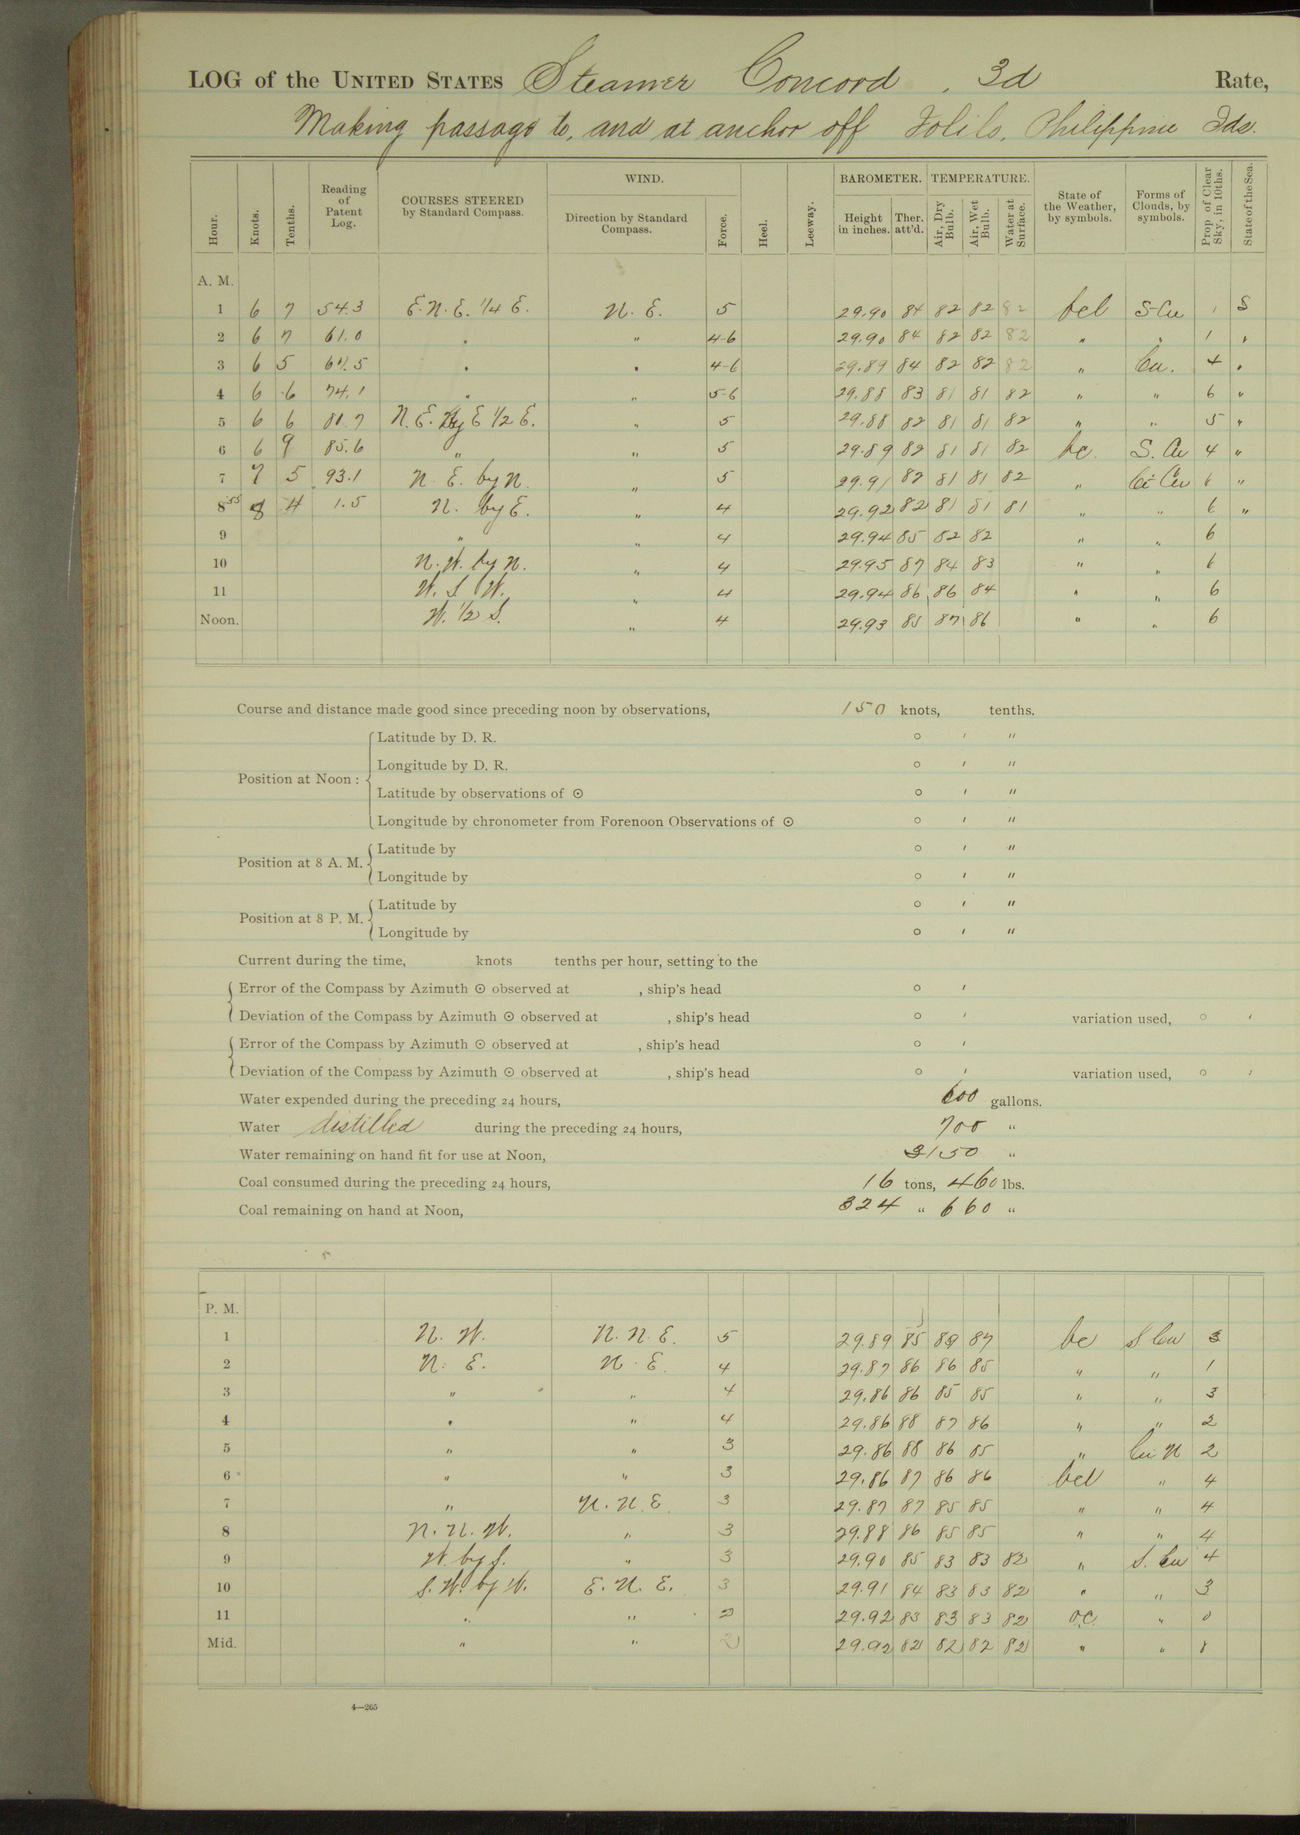 LOG of the UNITED STATES Steamer Concord, 3d Rate,
Making passage to, and at anchor off Iolilo, Philippine Ids.
Hour. Knots. Tenths. Reading of Patent Log. COURSES STEERED by Standard Compass. WIND. Direction by Standard Compass. Force. Heel. Leeway. BAROMETER. Height in inches. Ther. att'd. TEMPERATURE. Air, Dry Bulb. Air, Wet Bulb. Water at Surface. State of the Weather, by symbols. Forms of Clouds, by symbols. Prop of Clear Sky, in 10ths. State of the Sea.
A. M.
1 6 7 54.3 E.N.E. 1/4 E. N. E. 5 29.90 84 82 82 82 bcl S-Cu 1 S
2 6 7 61.0 " " 4-6 29.90 84 82 82 82 " " 1 "
3 6 5 67.5 " " 4-6 29.89 84 82 82 82 " Cu. 4 "
4 6 6 74.1 " " 5-6 29.88 83 81 81 82 " " 6 "
5 6 6 80.7 N.E. by E 1/2 E. " 5 29.88 82 81 81 82 " " 5 "
6 6 9 85.6 " " 5 29.89 82 81 81 82 bc. S. Cu 4 "
7 7 5 93.1 N. E. by N. " 5 29.91 82 81 81 82 " Ci-Cu 6 "
8 55 8 4 1.5 N. by E. " 4 29.92 82 81 81 81 " " 6 "
9 " " 4 29.94 85 82 82 " " 6
10 N.W. by N. " 4 29.95 87 84 83 " " 6
11 W. S W. " 4 29.94 86 86 84 " " 6
Noon. W. 1/2 S. " 4 29.93 85 87 86 " " 6
Course and distance made good since preceding noon by observations, 150 knots, tenths.
Position at Noon:
Latitude by D. R. ° ′ ″
Longitude by D. R. ° ′ ″
Latitude by observations of ☉ ° ′ ″
Longitude by chronometer from Forenoon Observations of ☉ ° ′ ″
Position at 8 A. M.
Latitude by ° ′ ″
Longitude by ° ′ ″
Position at 8 P. M.
Latitude by ° ′ ″
Longitude by ° ′ ″
Current during the time, knots tenths per hour, setting to the
Error of the Compass by Azimuth ☉ observed at , ship's head ° ′
Deviation of the Compass by Azimuth ☉ observed at , ship's head ° ′ variation used, ° ′
Error of the Compass by Azimuth ☉ observed at , ship's head ° ′
Deviation of the Compass by Azimuth ☉ observed at , ship's head ° ′ variation used, ° ′
Water expended during the preceding 24 hours, 600 gallons.
Water distilled during the preceding 24 hours, 700 "
Water remaining on hand fit for use at Noon, 3150 "
Coal consumed during the preceding 24 hours, 16 tons, 460 lbs.
Coal remaining on hand at Noon, 324 " 660 "
P. M.
1 N. W. N. N. E. 5 29.89 85 89 87 bc S. Cu 3
2 N. E. N. E. 4 29.87 86 86 85 " " 1
3 " " 4 29.86 86 85 85 " " 3
4 " " 4 29.86 88 87 86 " " 2
5 " " 3 29.86 88 86 85 " Cu-N 2
6 " " 3 29.86 87 86 86 bcl " 4
7 " N. N. E. 3 29.87 87 85 85 " " 4
8 N. N. W. " 3 29.88 86 85 85 " " 4
9 W. by S. " 3 29.90 85 83 83 82 " S. Cu 4
10 S. W. by W. E. N. E. 3 29.91 84 83 83 82 " " 3
11 " " 2 29.92 83 83 83 82 oc. " 0
Mid. " " 2 29.92 82 82 82 82 " "
4—265